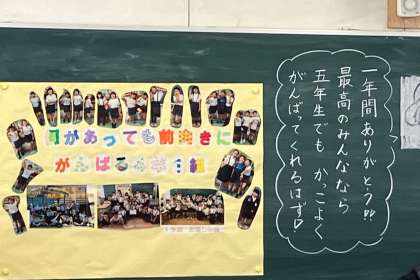 何があっても前向きに
がんばる
一年間ありがとう!!
最高のみんななら
五年生でも かっこよく
がんばってくれるはず!